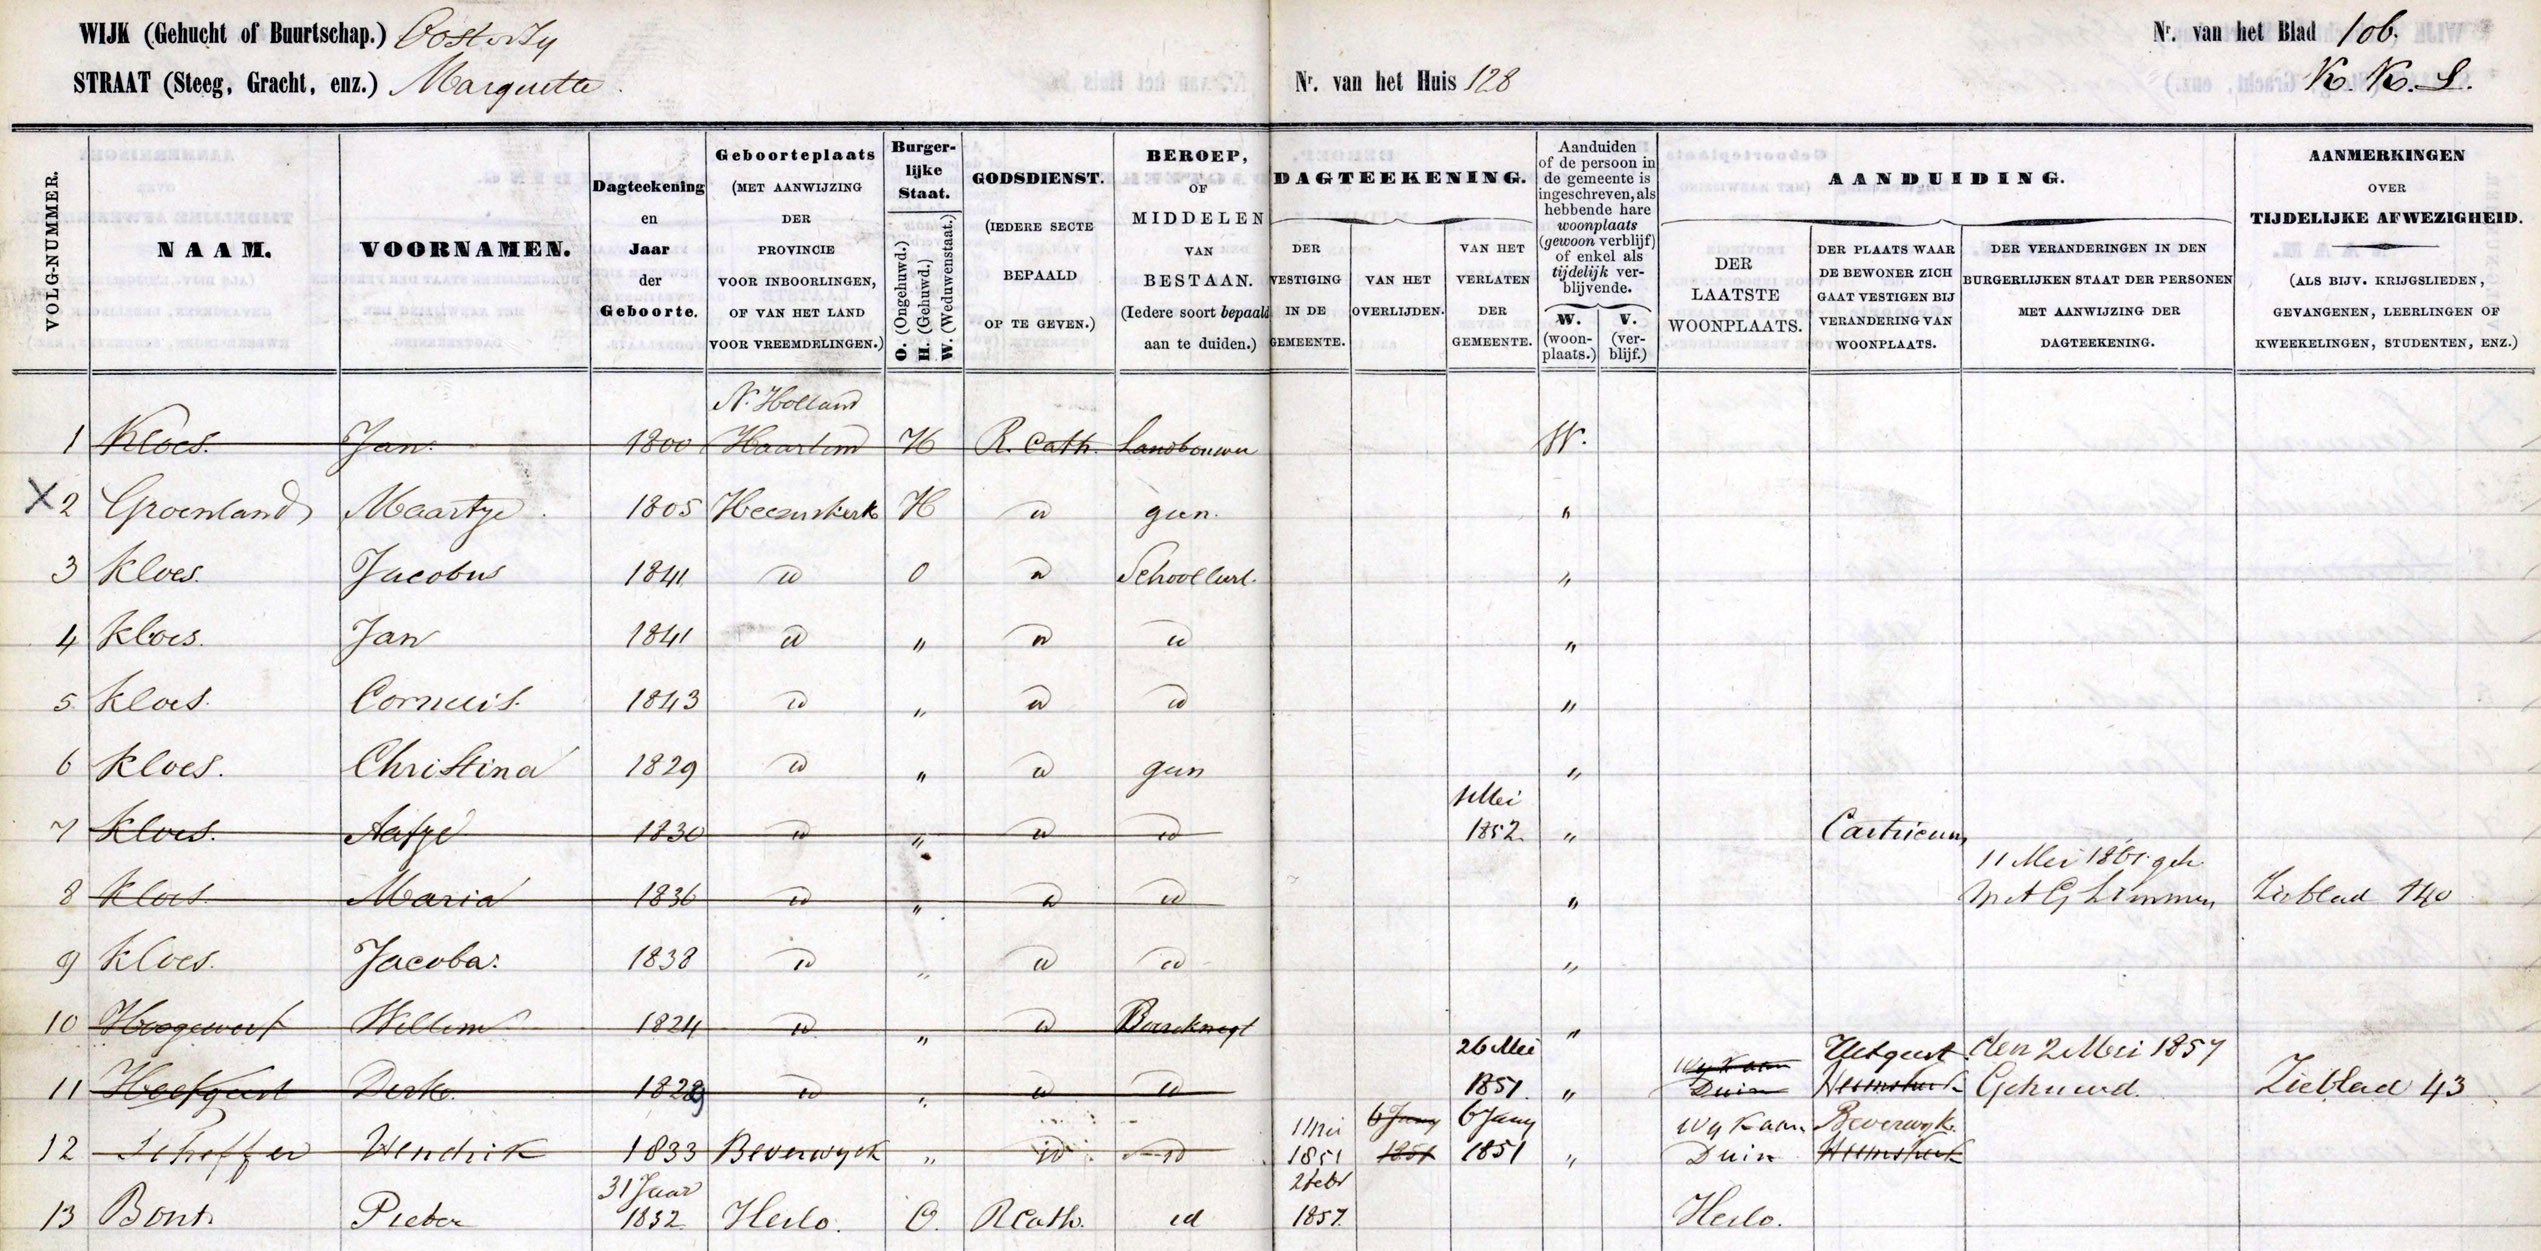 WIJK (Gehucht of Buurtschap.) Oosterzy
Nr. van het Blad 106.
STRAAT (Steeg, Gracht, enz.) Marquette.
Nr. van het Huis 128
K. K. L.
VOLG-NUMMER.
NAAM.
VOORNAMEN.
Dagteekening
en
Jaar
der
Geboorte.
Geboorteplaats
(MET AANWIJZING
DER
PROVINCIE
VOOR INBOORLINGEN,
OF VAN HET LAND
VOOR VREEMDELINGEN.)
Burger-
lijke
Staat.
O. (Ongehuwd.)
H. (Gehuwd.)
W. (Weduwenstaat.)
GODSDIENST.
(IEDERE SECTE
BEPAALD
OP TE GEVEN.)
BEROEP,
OF
MIDDELEN
VAN
BESTAAN.
(Iedere soort bepaald
aan te duiden.)
DAGTEEKENING.
DER
VESTIGING
IN DE
GEMEENTE.
VAN HET
OVERLIJDEN.
VAN HET
VERLATEN
DER
GEMEENTE.
Aanduiden
of de persoon in
de gemeente is
ingeschreven, als
hebbende hare
woonplaats
(gewoon verblijf)
of enkel als
tijdelijk ver-
blijvende.
W.
(woon-
plaats.)
V.
(ver-
blijf.)
AANDUIDING.
DER
LAATSTE
WOONPLAATS.
DER PLAATS WAAR
DE BEWONER ZICH
GAAT VESTIGEN BIJ
VERANDERING VAN
WOONPLAATS.
DER VERANDERINGEN IN DEN
BURGERLIJKEN STAAT DER PERSONEN
MET AANWIJZING DER
DAGTEEKENING.
AANMERKINGEN
OVER
TIJDELIJKE AFWEZIGHEID.
(ALS BIJV. KRIJGSLIEDEN,
GEVANGENEN, LEERLINGEN OF
KWEEKELINGEN, STUDENTEN, ENZ.)
N. Holland
1 Kloes. Jan. 1800 Haarlem H R. Cath. Landbouwer W.
X 2 Groenland Maartje 1805 Heemskerk H id geen. "
3 Kloes. Jacobus 1841 id O id Schoolleerl. "
4 Kloes. Jan 1841 id " id id "
5 Kloes. Cornelis. 1843 id " id id "
6 Kloes. Christina 1829 id " id geen "
1 Mei
7 Kloes. Aafje 1830 id " id id 1852 " Castricum
11 Mei 1861 geh
8 Kloes. Maria 1836 id " id id " m A G Limmen Zie blad 140
9 Kloes. Jacoba. 1838 id " id id "
10 Hoogewerf Willem 1824 id " id Boereknegt "
26 Mei Wyk aan Uitgeest. den 2 Mei 1857
11 Dirk 1829 id " id id 1851. " Duin Heemskerk Gehuwd. Zie blad 43
1 Mei 6 Juny 6 Juny Wyk aan Beverwyk.
12 Scheffer Hendrik 1833 Beverwyck " id id 1851 1851 1851 " Duin Heemskerk
31 Jaar 2 febr
13 Bont Pieter 1832 Heilo. O. R Cath. id 1857 Heilo.